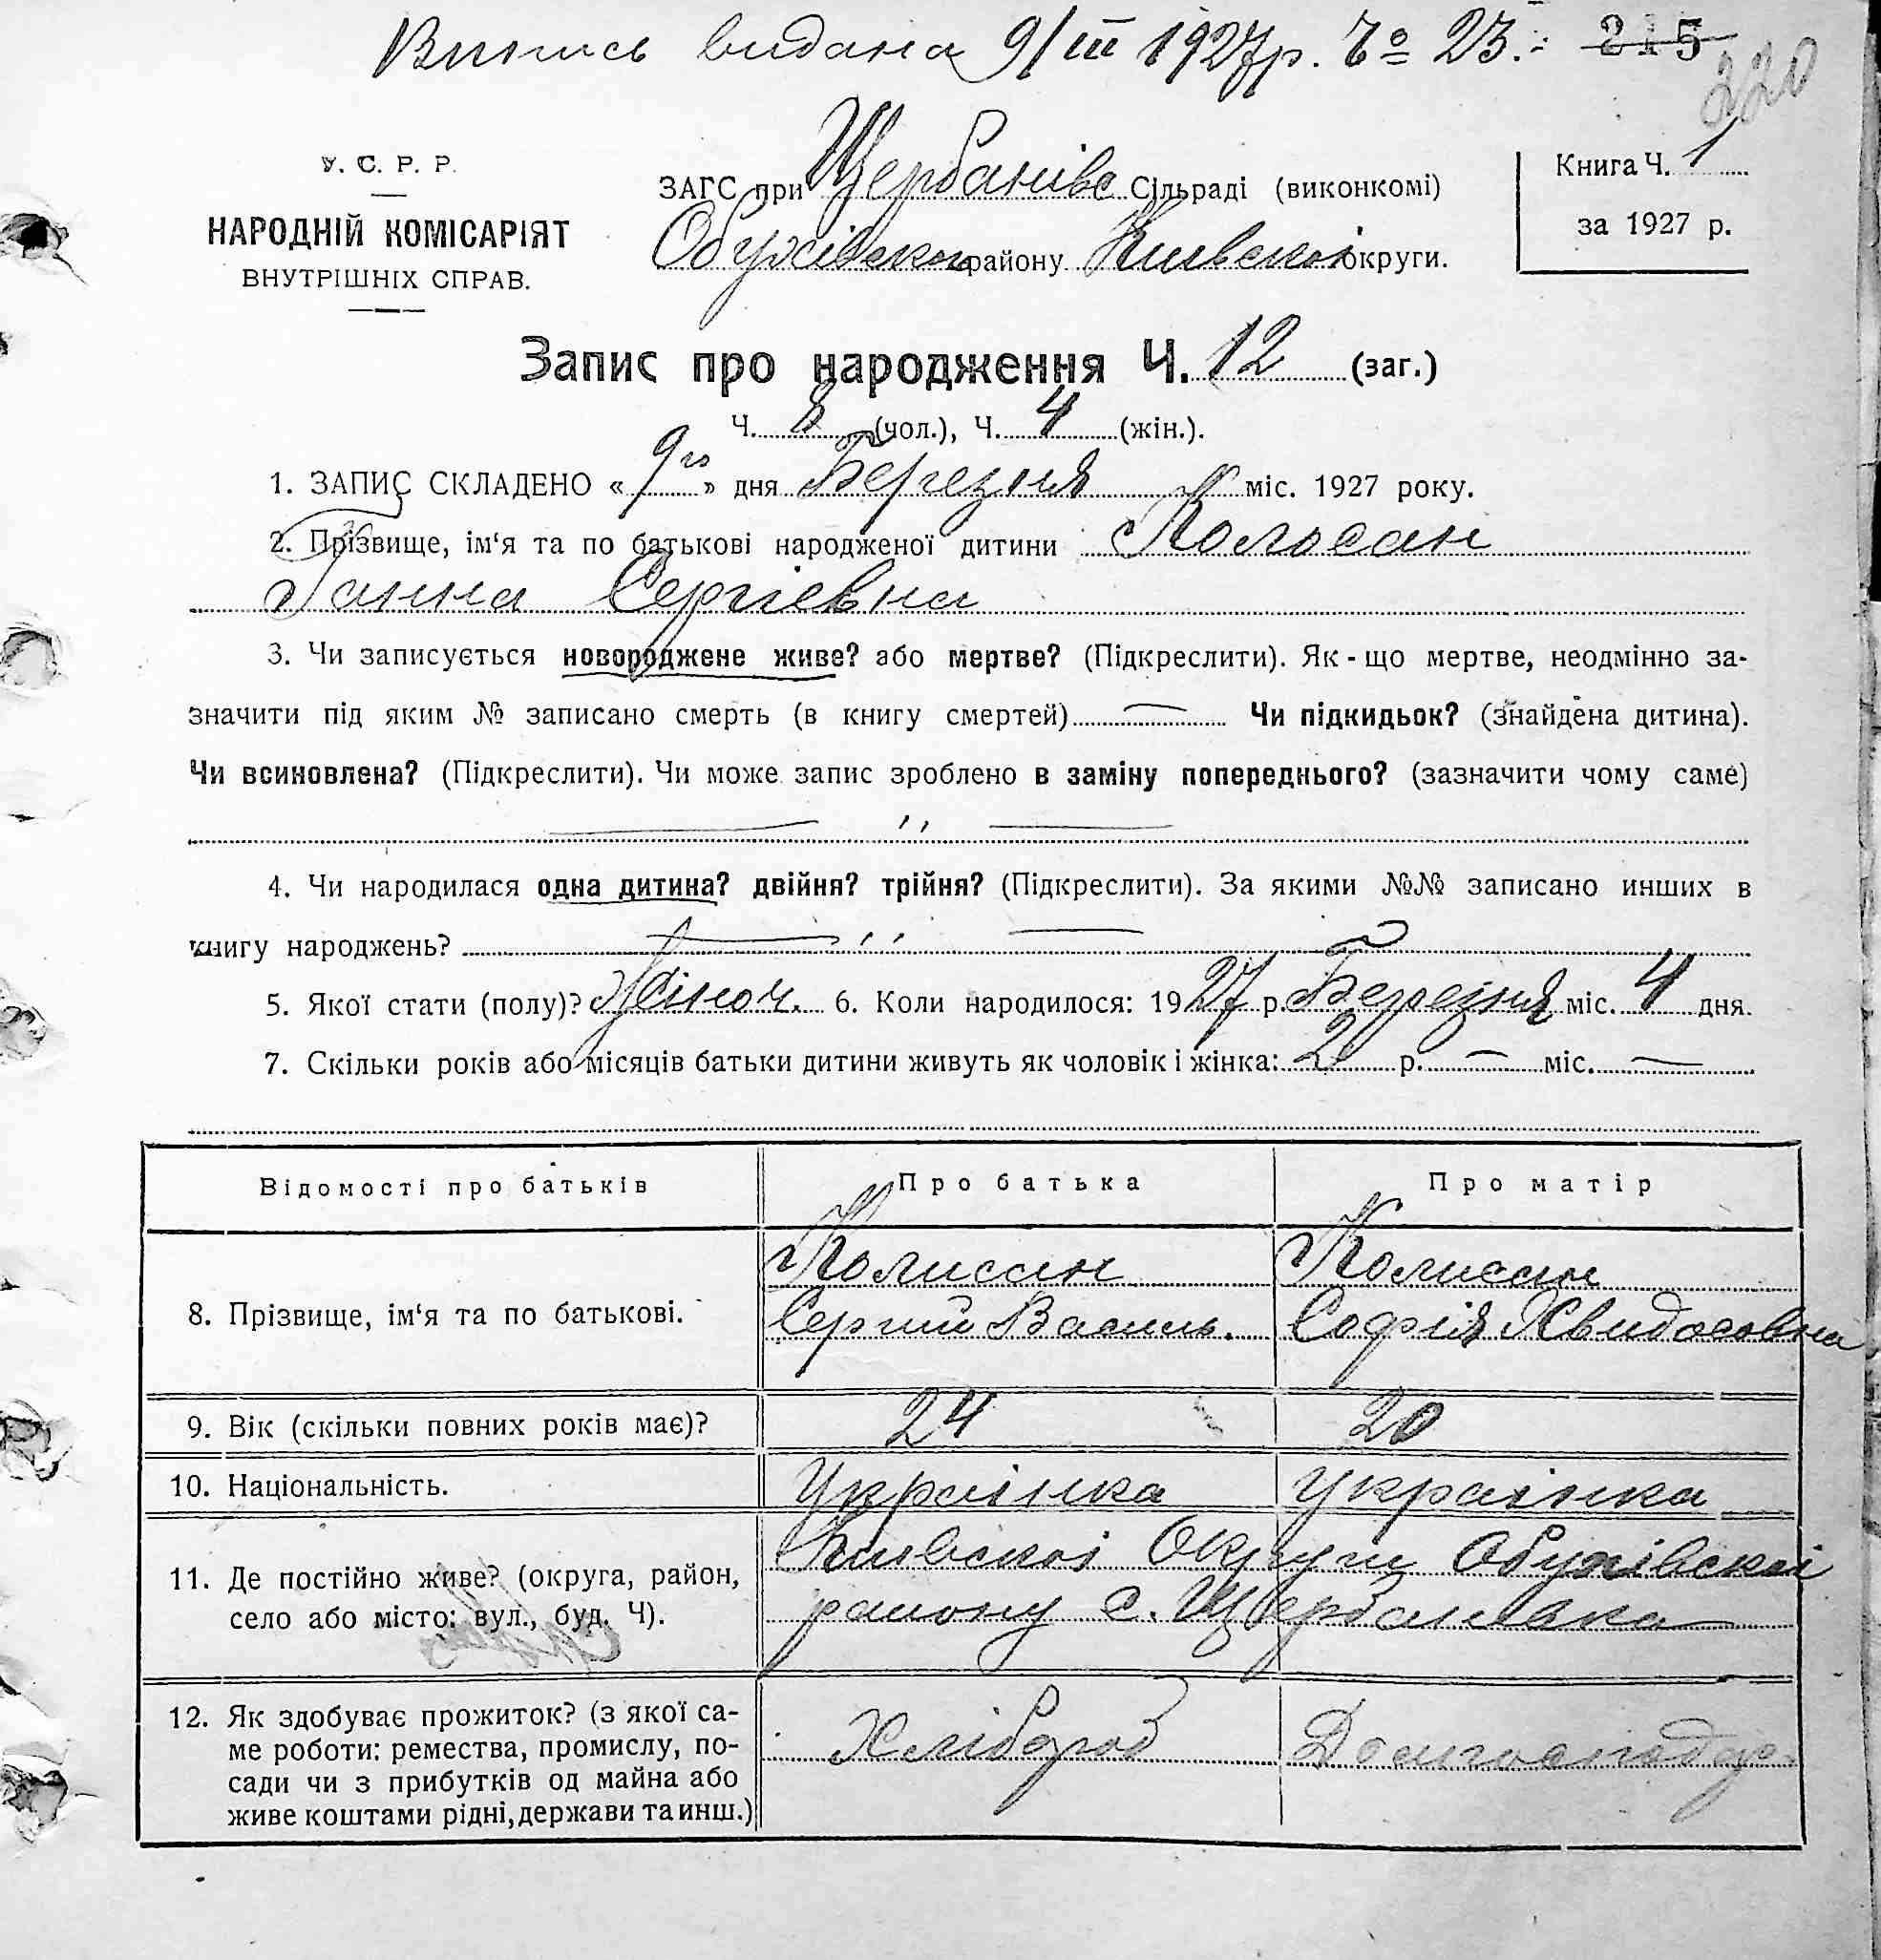 Випись видана 9/III 1927р. № 23. 215
220
У. С. Р. Р.
НАРОДНІЙ КОМІСАРІЯТ
ВНУТРІШНІХ СПРАВ.
ЗАГС при Щербанівс Сільраді (виконкомі)
Обухівского району Киівскоі округи.
Книга Ч. 1
за 1927 р.
Запис про народження Ч. 12 (заг.)
Ч. 8 (чол.), Ч. 4 (жін.).
1. ЗАПИС СКЛАДЕНО «9го» дня Березня міс. 1927 року.
2. Прізвище, ім‘я та по батькові народженої дитини Колосан
Ганна Сергіевна
3. Чи записується новороджене живе? або мертве? (Підкреслити). Як-що мертве, неодмінно за-
значити під яким № записано смерть (в книгу смертей) — Чи підкидьок? (знайдена дитина).
Чи всиновлена? (Підкреслити). Чи може запис зроблено в заміну попереднього? (зазначити чому саме)
— ,, —
4. Чи народилася одна дитина? двійня? трійня? (Підкреслити). За якими №№ записано инших в
книгу народжень? — ,, —
5. Якої стати (полу)? Жіноч. 6. Коли народилося: 1927 р. Березня міс. 4 дня.
7. Скільки років або місяців батьки дитини живуть як чоловік і жінка: 2 р. — міс. —
Відомості про батьків Про батька Про матір
8. Прізвище, ім‘я та по батькові.
Колисан Колисан
Сергий Василь. Софія Хвидосовна
9. Вік (скільки повних років має)? 24 20
10. Національність. Украінка Украінка
11. Де постійно живе? (округа, район,
село або місто: вул., буд. Ч).
Киівскоі Округи Обухівскоі
району с. Щербанівка
12. Як здобуває прожиток? (з якої са-
ме роботи: ремества, промислу, по-
сади чи з прибутків од майна або
живе коштами рідні, держави та инш.)
Хлібороб Домгосподар